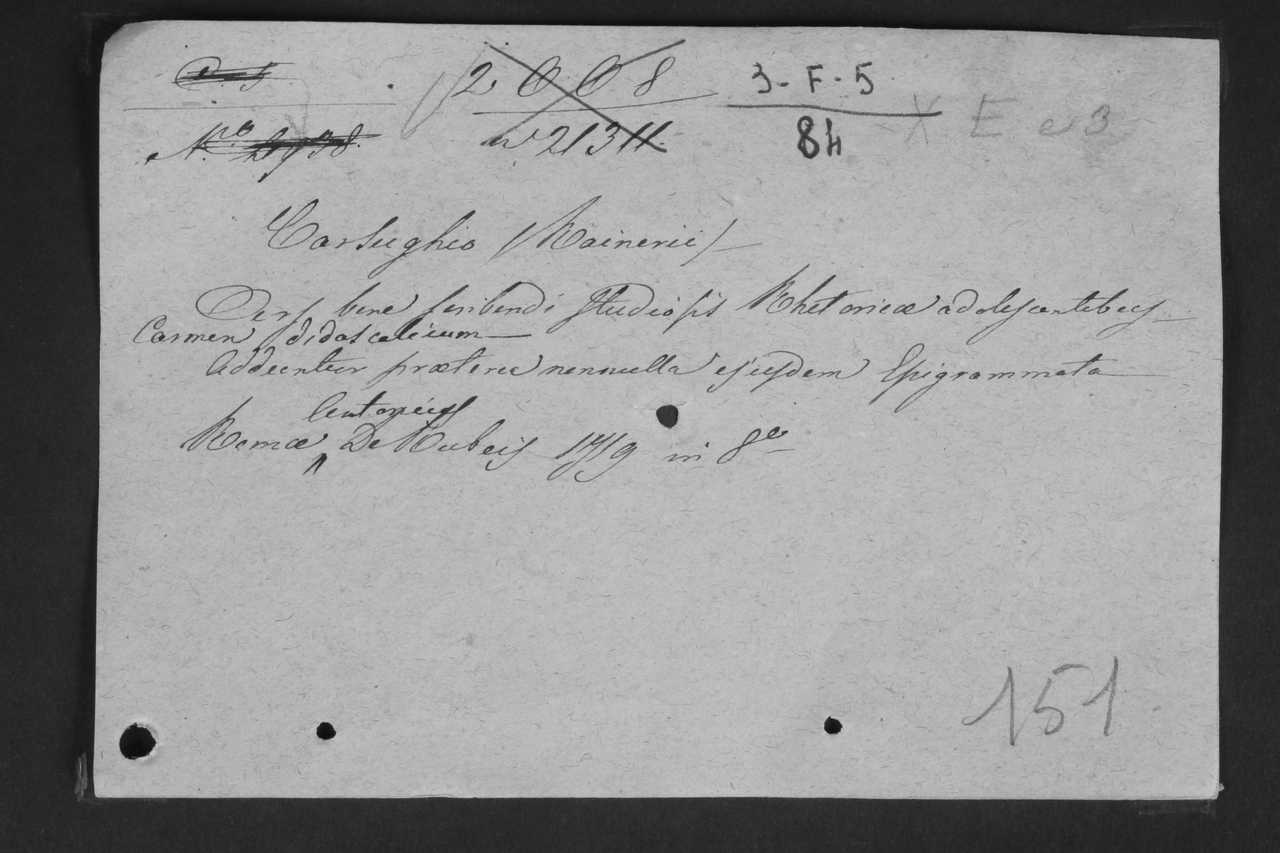 2 0 0 8
3 - F - 5
X E e 3
Nº
21311
84
Carsughio (Rainerii)
Ars bene scribendi studiosis Rhetoricæ adolescentibus
Carmen didascalicum
Adduntur præterea nonnulla ejusdem Epigrammata
Romæ De Rubeis 1719 in 8º
151